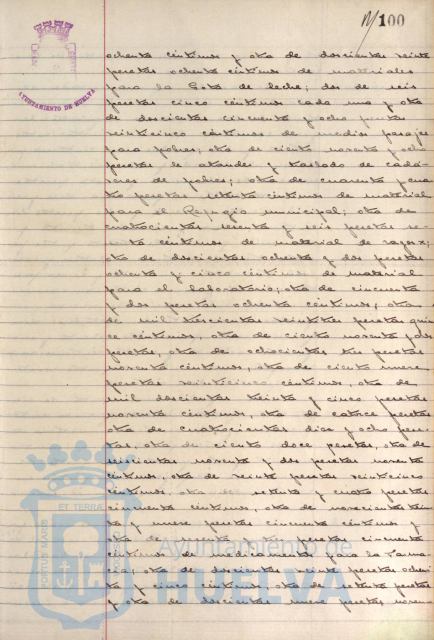 N/100
AYUNTAMIENTO DE HUELVA
ochenta céntimos y otra de doscientas veinte
pesetas ochenta céntimos de materiales
para la Gota de leche; dos de seis
pesetas cinco céntimos cada una y otra
de doscientas cincuenta y ocho pesetas
veinticinco céntimos de medios pasajes
para pobres; otra de ciento noventa y ocho
pesetas de ataudes y traslado de cadá-
veres de pobres; otra de cuarenta y cua-
tro pesetas setenta céntimos de material
para el Refugio municipal; otra de
cuatrocientas sesenta y seis pesetas se-
céntimos de material de
otra de doscientas ochenta y dos pesetas
ochenta y cinco céntimos de material
para el laboratorio; otra de cincuenta
y dos pesetas ochenta céntimos, otra
de mil trescientas veintitres pesetas quin-
ce céntimos, otra de ciento noventa y dos
pesetas, otra de ochocientas tres pesetas
noventa céntimos, otra de ciento nueve
pesetas veinticinco céntimos, otra de
mil doscientas treinta y cinco pesetas
noventa céntimos, otra de catorce pesetas
otra de cuatrocientas diez y ocho pese-
tas, otra de ciento doce pesetas, otra de
seiscientas noventa y dos pesetas noventa
céntimos, otra de veinte pesetas veinticinco
céntimos, otra de setenta y cuatro pesetas
cincuenta céntimos, otra de novecientas
y nueve pesetas cincuenta céntimos y
otra de noventa y tres pesetas cincuenta
céntimos de medicamentos para la Farma-
cia; otra de doscientas veinte pesetas ochen-
ta y cinco céntimos, otra de setenta pesetas
y otra de doscientas nueve pesetas noven-
PORTUS MARIS ET TERRAE
Ayuntamiento de
HUELVA